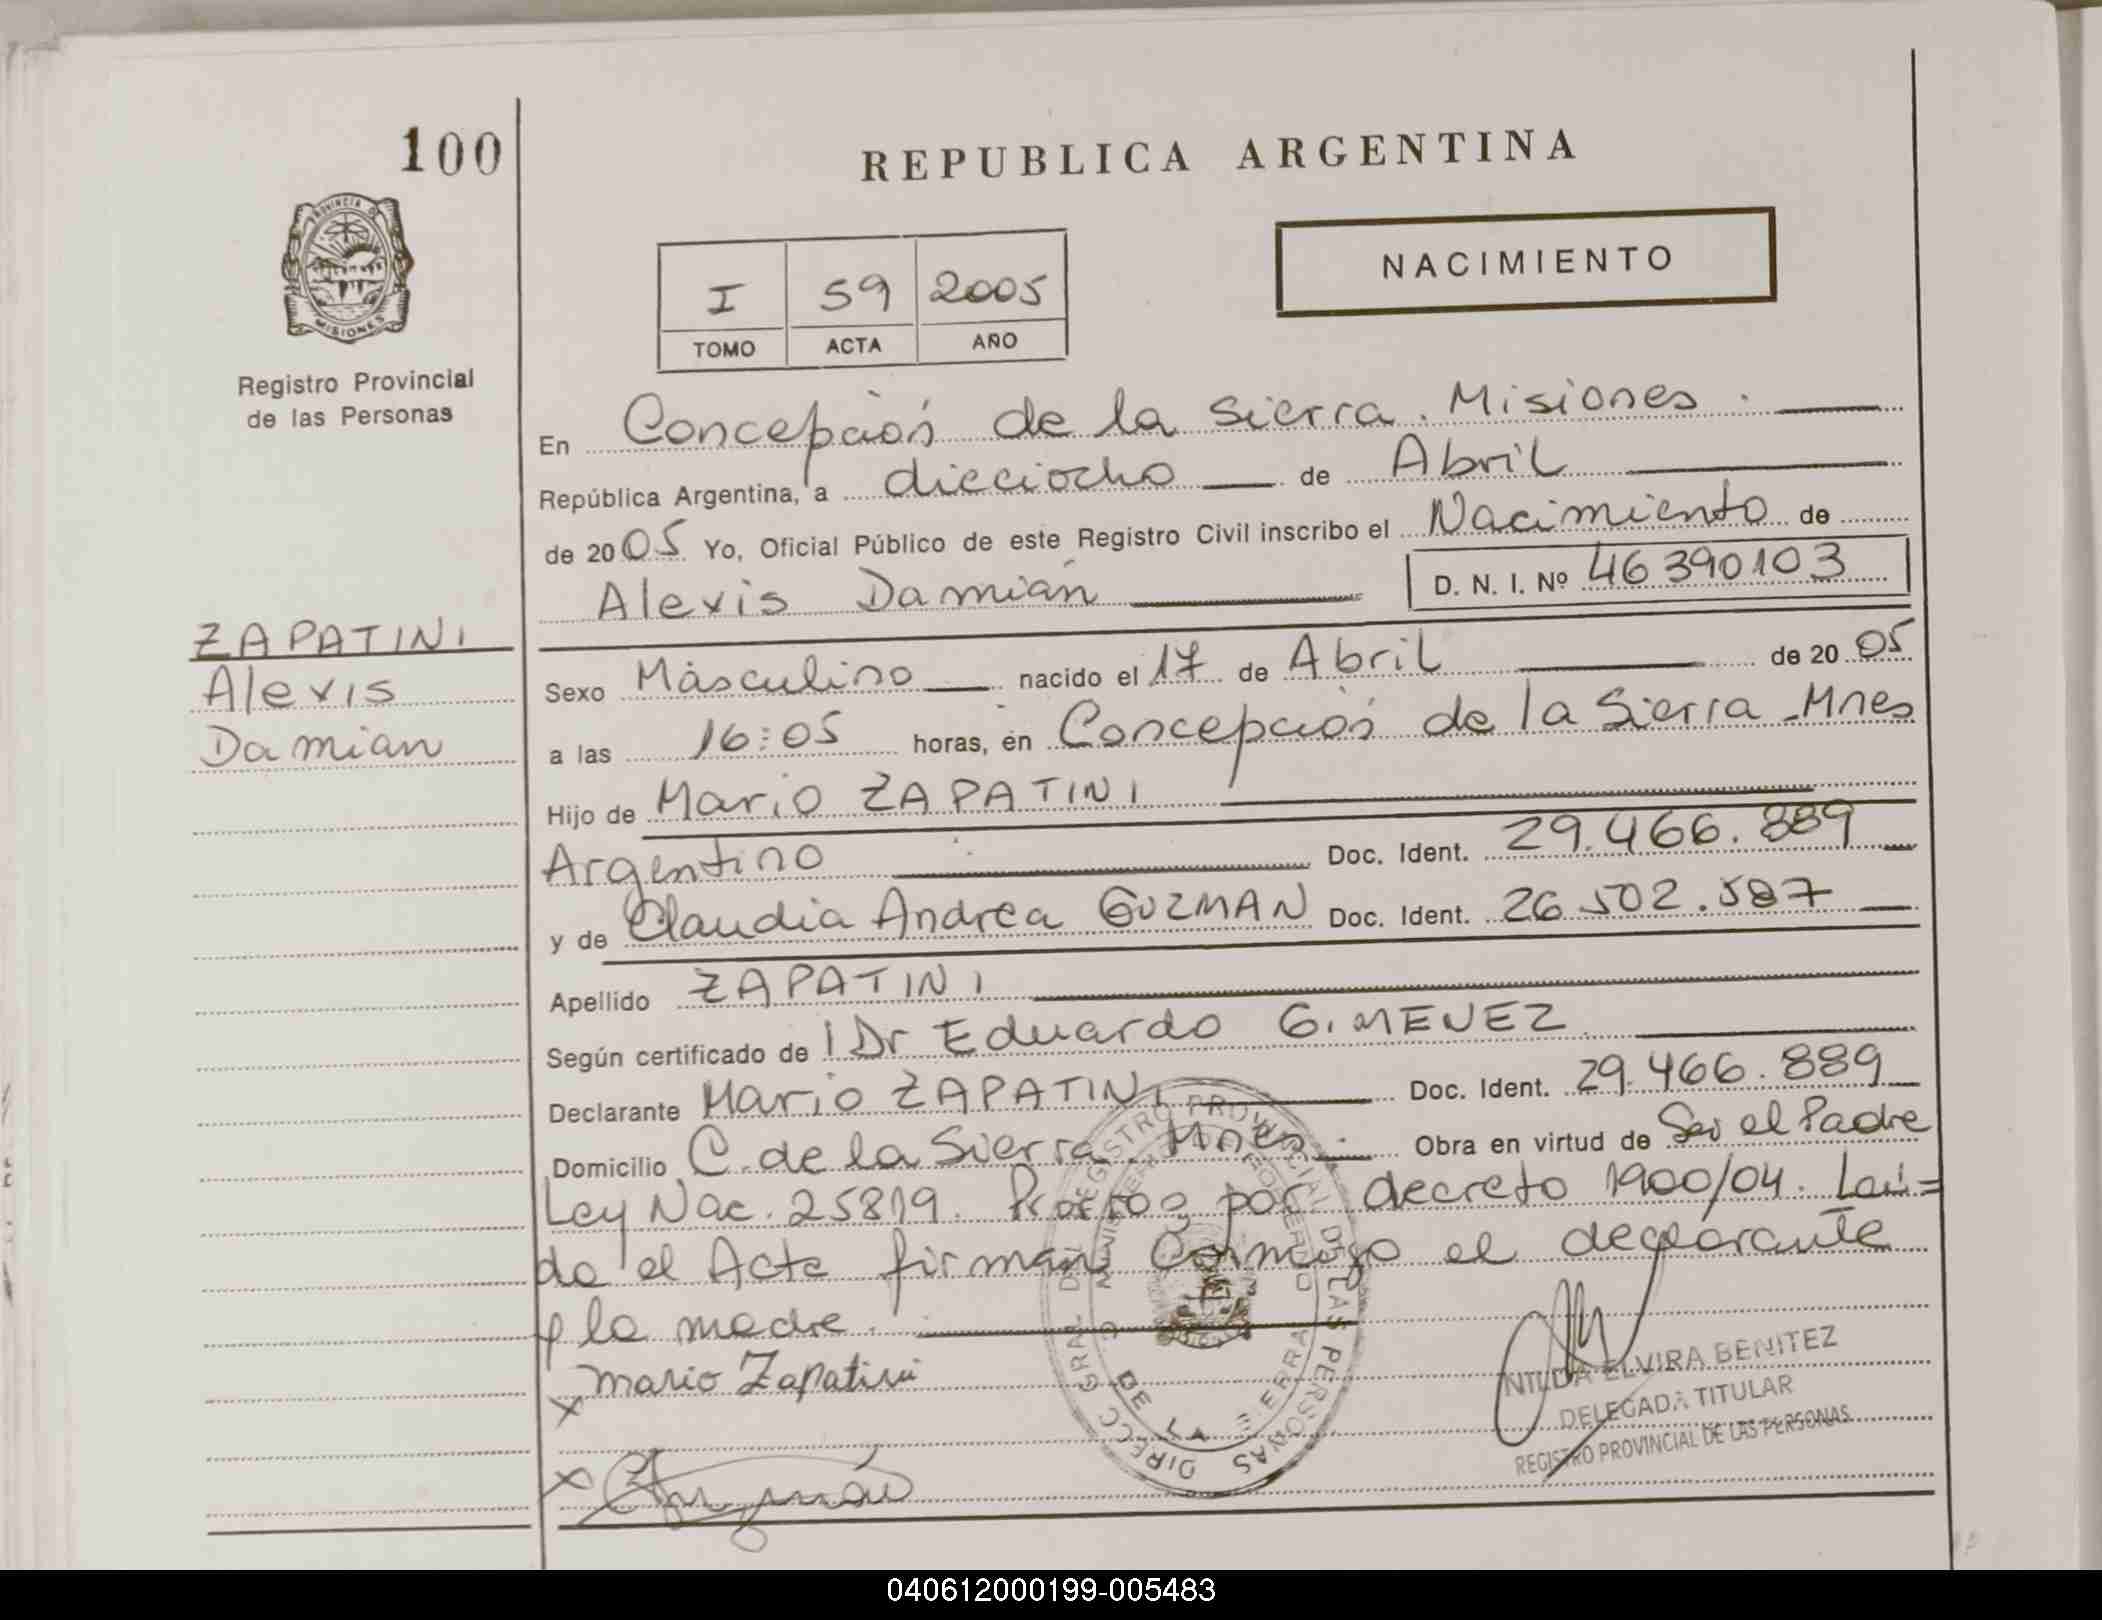 100
REPUBLICA ARGENTINA
PROVINCIA DE
MISIONES
NACIMIENTO
I 59 2005
TOMO ACTA AÑO
Registro Provincial
de las Personas
En Concepción de la Sierra. Misiones.
República Argentina, a dieciocho de Abril
de 2005 Yo, Oficial Público de este Registro Civil inscribo el Nacimiento de
Alexis Damián D. N. I. Nº 46390103
ZAPATINI
Alexis
Damian
Sexo Masculino nacido el 17 de Abril de 2005
a las 16:05 horas, en Concepción de la Sierra - Mnes
Hijo de Mario ZAPATINI
Argentino Doc. Ident. 29.466.889
y de Claudia Andrea GUZMAN Doc. Ident. 26.502.587
Apellido ZAPATINI
Según certificado de Dr Eduardo GIMENEZ
Declarante Mario ZAPATINI Doc. Ident. 29.466.889
Domicilio C. de la Sierra Mnes. Obra en virtud de Ser el Padre
Ley Nac. 25819. por decreto 1900/04. Leí=
da el Acta firman Conmigo el declarante
y la madre.
Mario Zapatini
X
X Guzmán
DIREC. GRAL. DEL REGISTRO PROVINCIAL DE LAS PERSONAS
NILDA ELVIRA BENITEZ
DELEGADA TITULAR
REGISTRO PROVINCIAL DE LAS PERSONAS
040612000199-005483